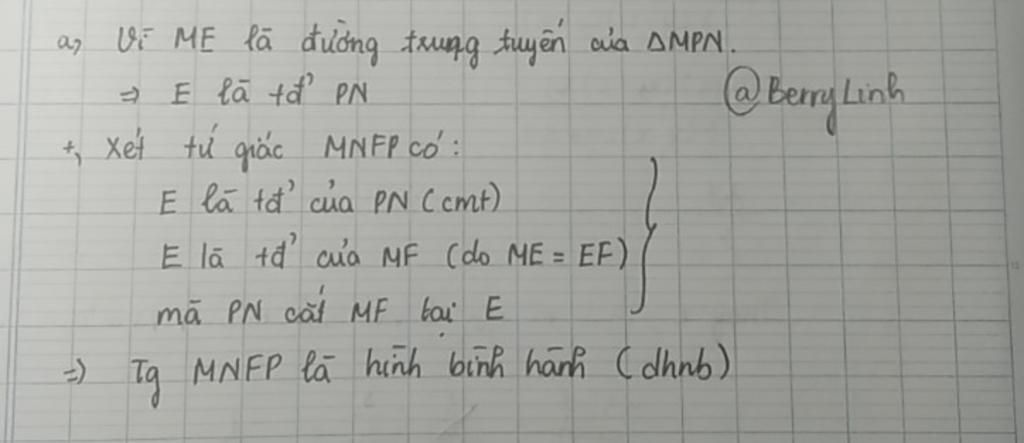 a, Vì ME là đường trung tuyến của ΔMPN.
⇒ E là tđ' PN
@BerryLinh
+, Xét tứ giác MNFP có:
E là tđ' của PN (cmt)
E là tđ' của MF (do ME = EF)
mà PN cắt MF tại E
=) Tg MNFP là hình bình hành (dhnb)